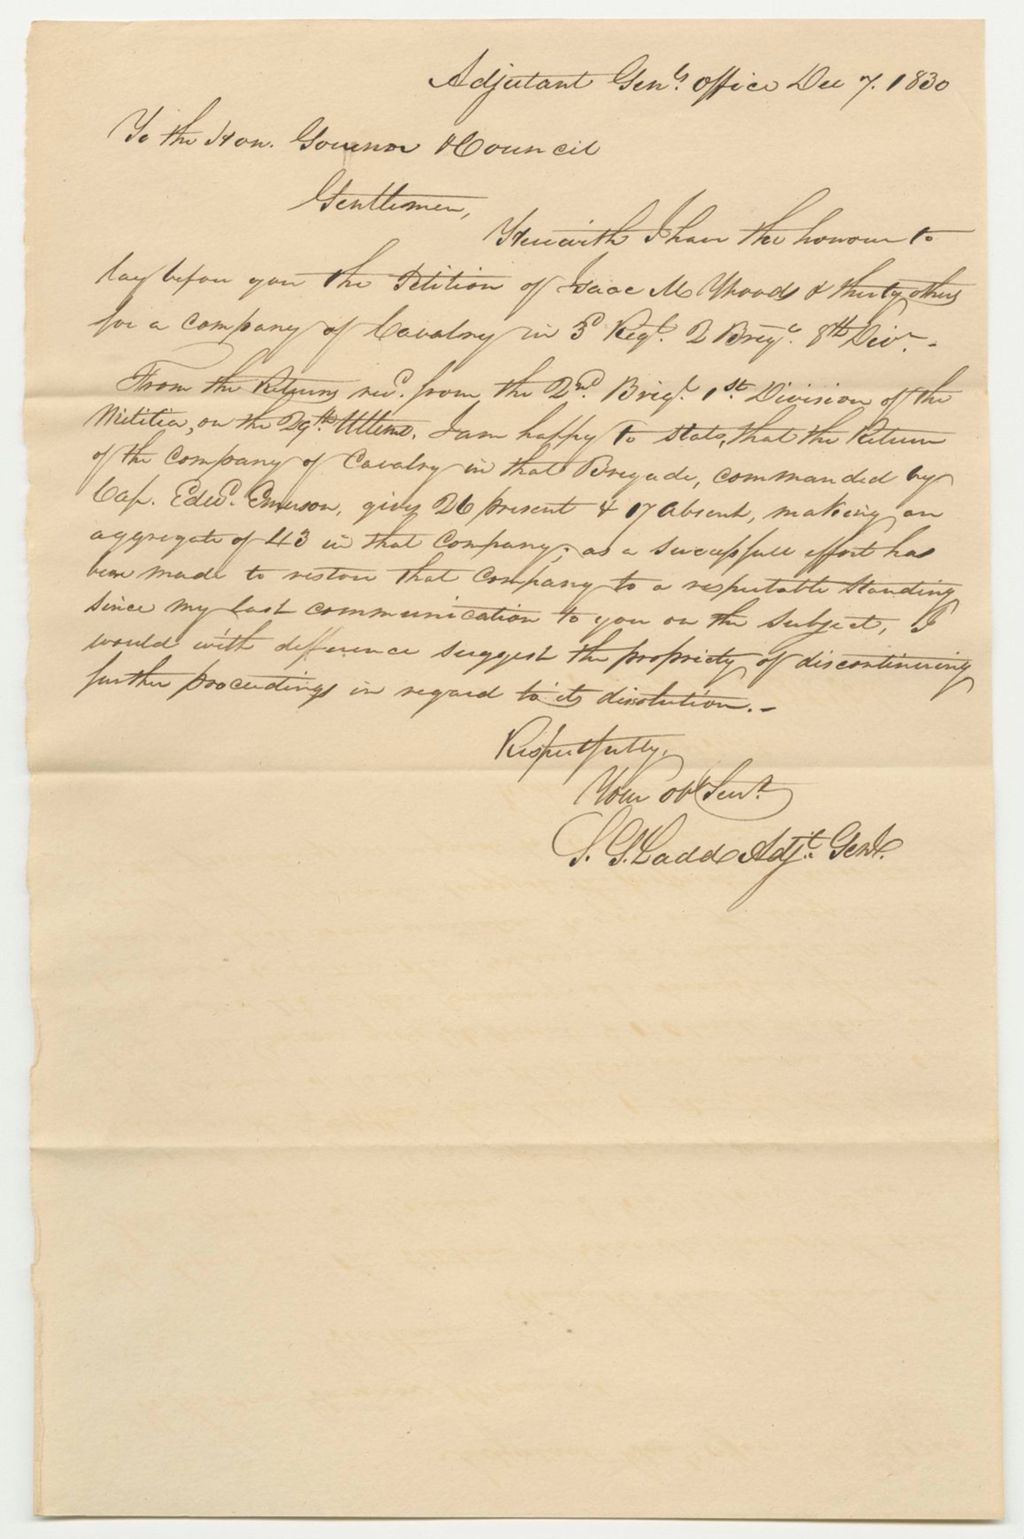 Adjutant Genls. office Dec 7. 1830
To the Hon. Governor & Council
Gentlemen,
Herewith I have the honour to
lay before you the Petition of Isaac M Woods & thirty others
for a company of Cavalry in 3d Regt. 2 Brige. 8th Divn.
From the Returns recd. from the 2nd. Brige. 1st. Division of the
Militia, on the 29th. Ultimo. I am happy to state, that the Return
of the Company of Cavalry in that Brigade, commanded by
Cap. Edwd. Emerson, gives 26 present & 17 absent, making an
aggregate of 43 in that Company; as a successfull effort has
been made to restore that Company to a respectable standing
since my last communication to you on the subject, I
would with defference suggest the propriety of discontinuing
further proceedings in regard to its disolution.
Respectfully,
Your obt Servt.
S. G. Ladd Adjt. Genl.